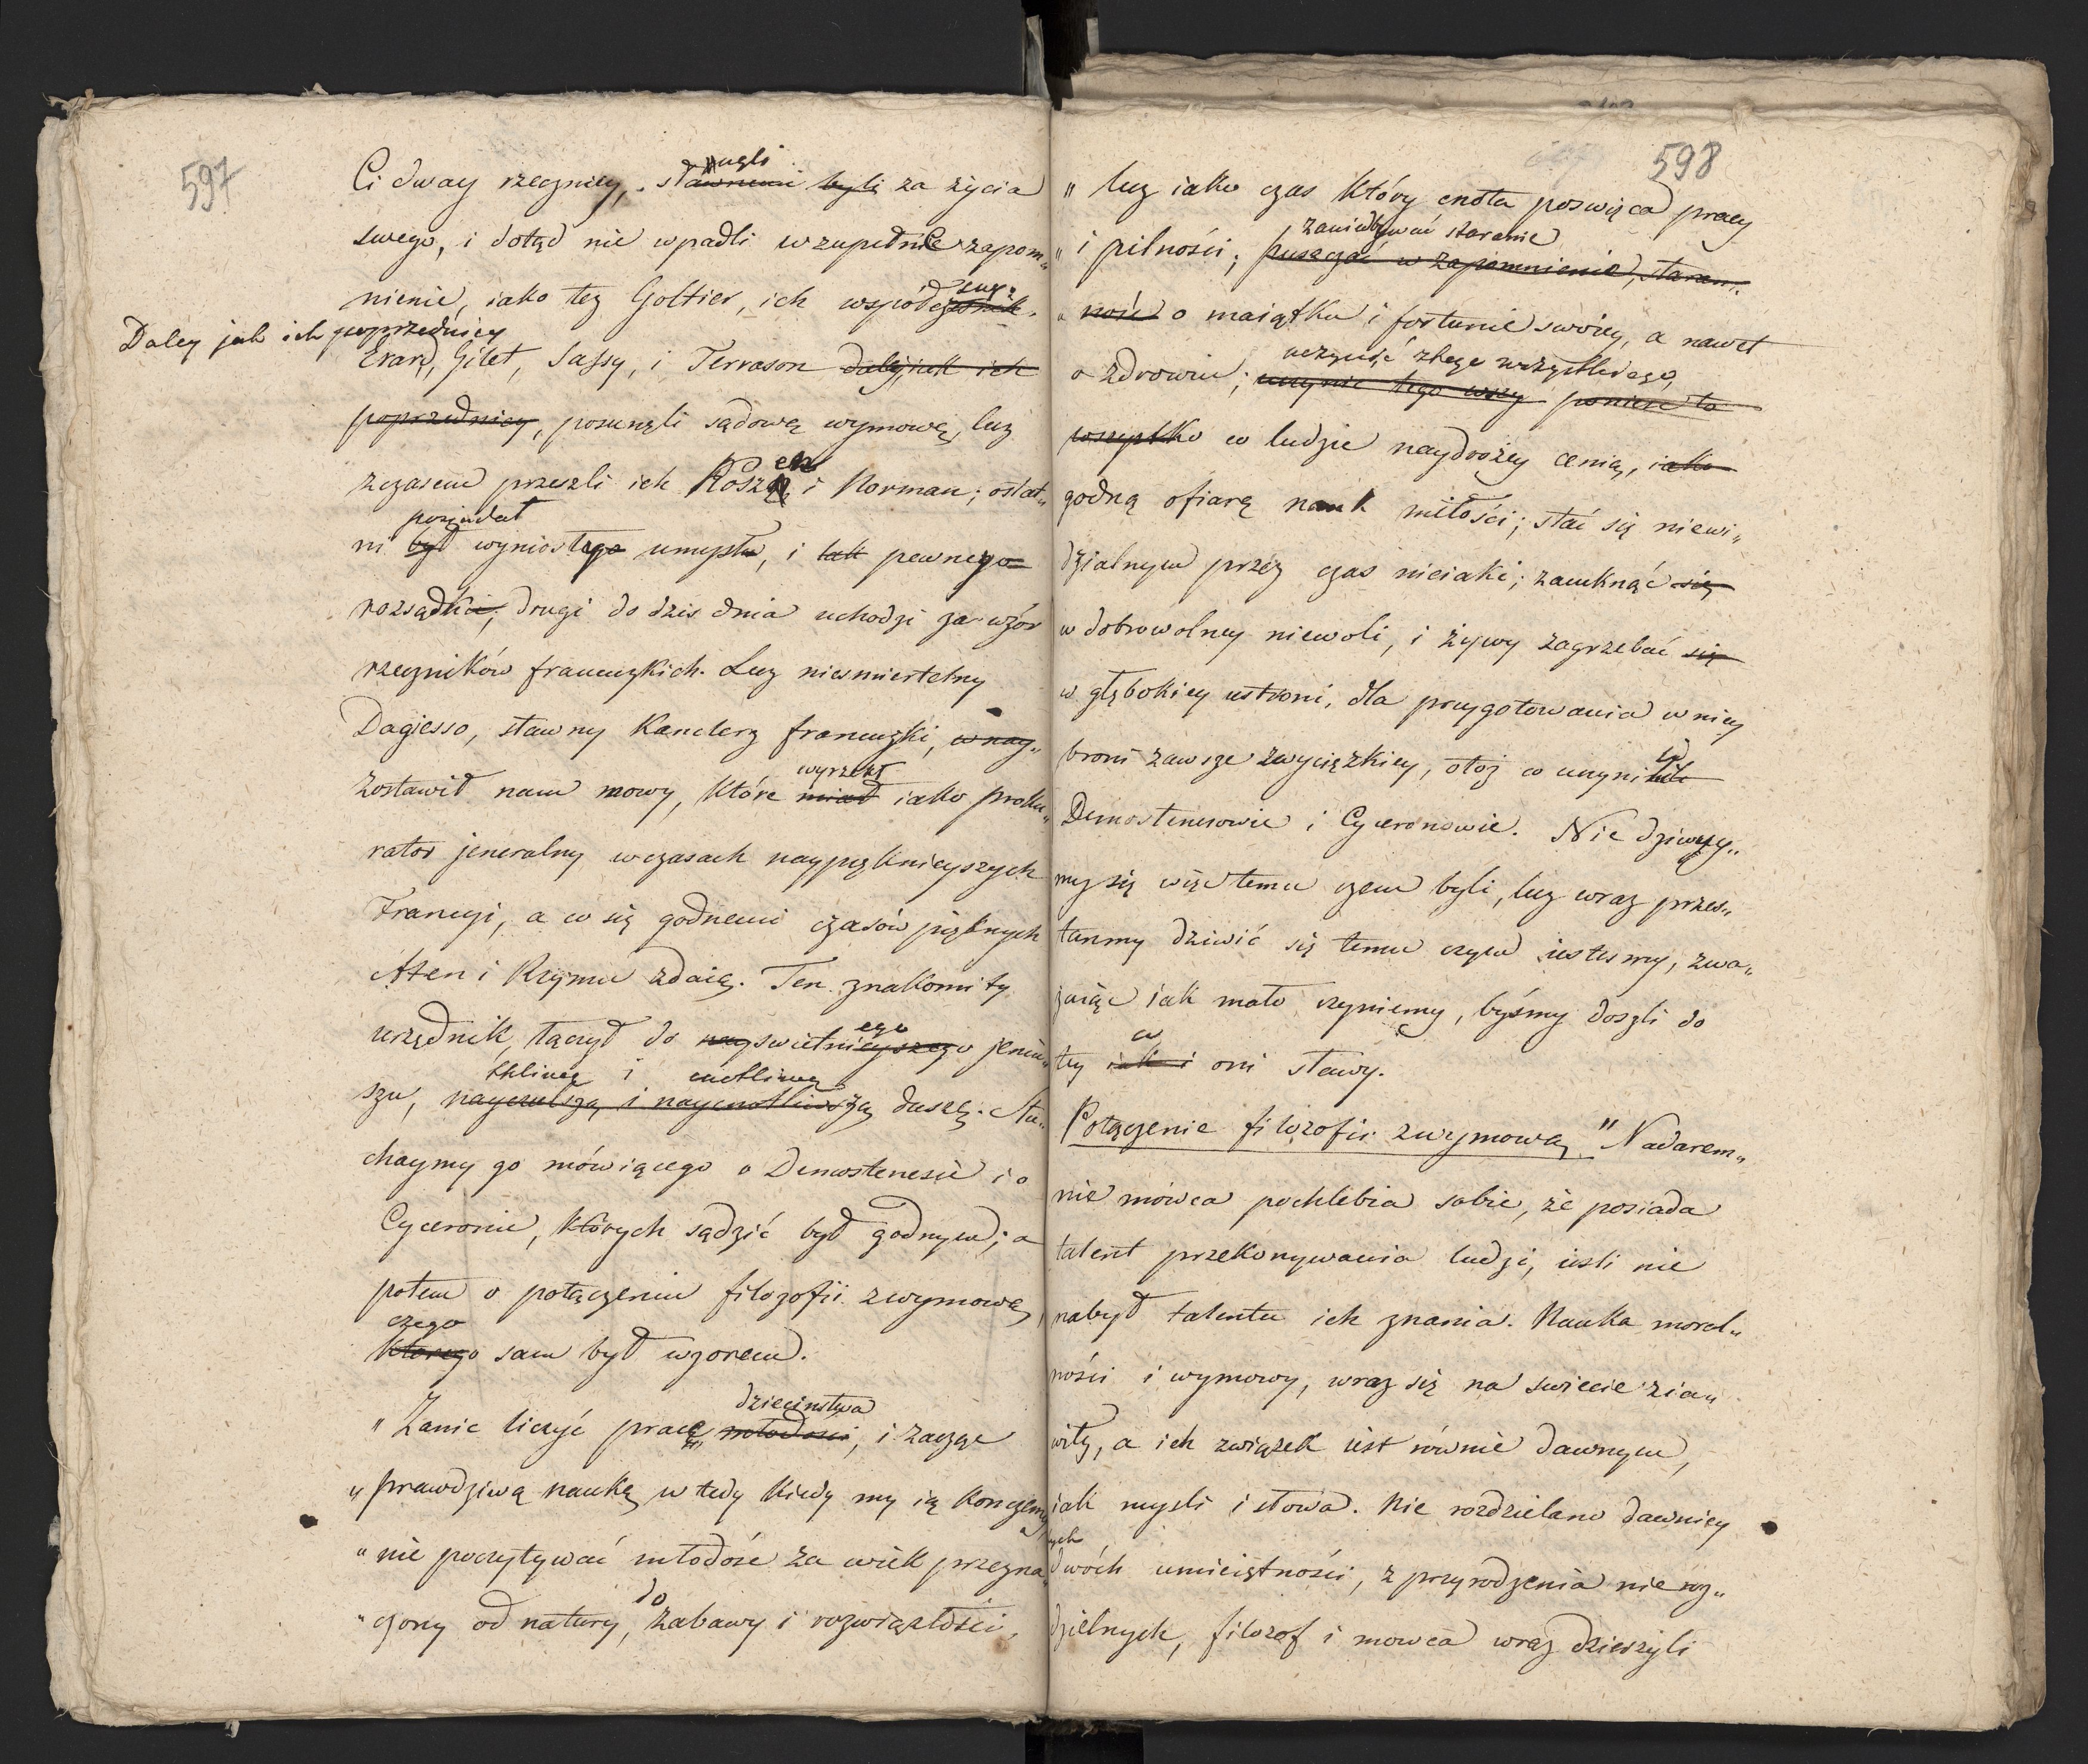 597
Ci dway rzecznicy, sławnemi byli za życia
swego, i dotąd nie wpadli w zupełnie zapom„
nienie, iako też Goltier, ich współcześnik.
Daley jak ich poprzednicy
Erard, Gilet, Sassy, i Terrason daley jak ich
poprzednicy, posunęli sądową wymowę, lecz
zczasem przeszli ich Koszen i Norman; ostat„
posiadał
ni był wyniosłego umysłu, i tak pewnego
rozsądku, drugi do dzis dnia uchodzi za wzór
rzeczników francuzkich. Lecz niesmiertelny
Dagiesso, sławny Kanclerz francuzki, w nay„
wyrzekł
zostawił nam mowy, które miał iako proku„
rator jeneralny w czasach naypięknieyszych
Francyi, a co się godnemi czasów pięknych
Aten i Rzymu zdaią. Ten znakomity
ego
urzędnik, łączył do nayswietnieyszego jeniu„
tkliwą i cnotliwą
szu, nayczulszą i naycnotliwszą duszę. Słu„
chaymy go mówiącego o Demostenesie i o
Cyceronie, których sądzić był godnym; a
potem o połączeniu filozofii z wymową,
czego
którego sam był wzorem.
dzieciństwa
„ Zanic liczyć pracę młodości, i zacząć
„ prawdziwą naukę w tedy kiedy my ią konczemy,
„ nie poczytywać młodość za wiek przezna„
do
„ czony od natury, zabawy i rozwiązłości,
598
„ lecz iako czas który cnota poswięca pracy
zaniedbywać staranie
„ i pilności; puszczać w zapomnienie, staran„
„ ność o maiątku i fortunie swoiey, a nawet
uczynić z tego wszystkiego,
o zdrowiu; uczynic tego wszy poniesc to
wszystko co ludzie naydrożey cenią, iako
godną ofiarę nauk miłości; stać się niewi„
dzialnym przez czas nieiaki; zamknąć się
w dobrowolney niewoli, i żywy zagrzebać się
w głębokiey ustroni, dla przygotowania w niey
broni zawsze zwycięzkiey, otóż co uczynili
Demostenesowie i Cyceronowie. Nie dziwuy„
my się więc temu czem byli, lecz wraz przes„
tanmy dziwić się temu czym iestesmy, zwa„
żaiąc iak mało czyniemy, byśmy doszli do
co
tey iak i oni sławy.
Połączenie filozofii z wymową. "Nadarem„
nie mówca pochlebia sobie, że posiada
talent przekonywania ludzi, iesli nie
nabył talentu ich znania. Nauka moral„
ności i wymowy, wraz się na swiecie ziau
wiły, a ich związek iest równie dawnym,
iak mysli i słowa. Nie rozdzielano dawniey
tych
dwóch umieiętności, z przyrodzenia nieroz„
dzielnych, filozof i mowca wraz dzierżyli